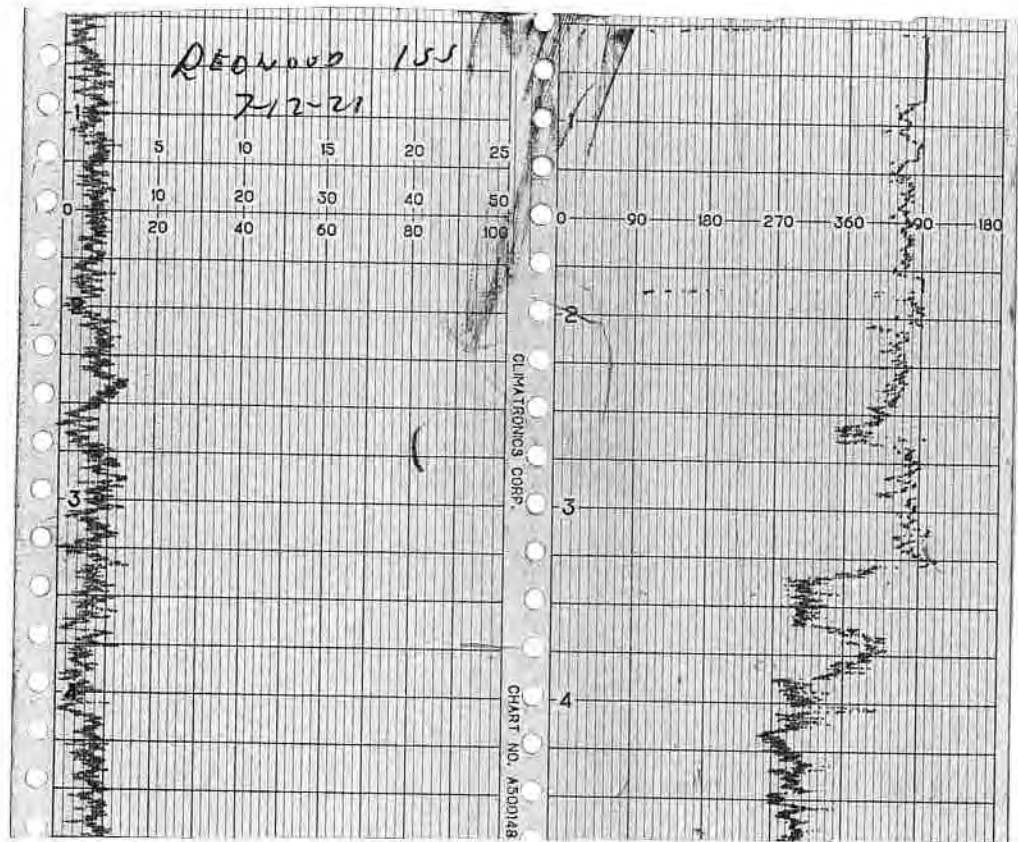 REDWOOD 1SS
7-12-21
1
5 10 15 20 25
0 10 20 30 40 50
20 40 60 80 100
0 90 180 270 360 90 180
2
3
3
4
CLIMATRONICS CORP.
CHART NO. A500148